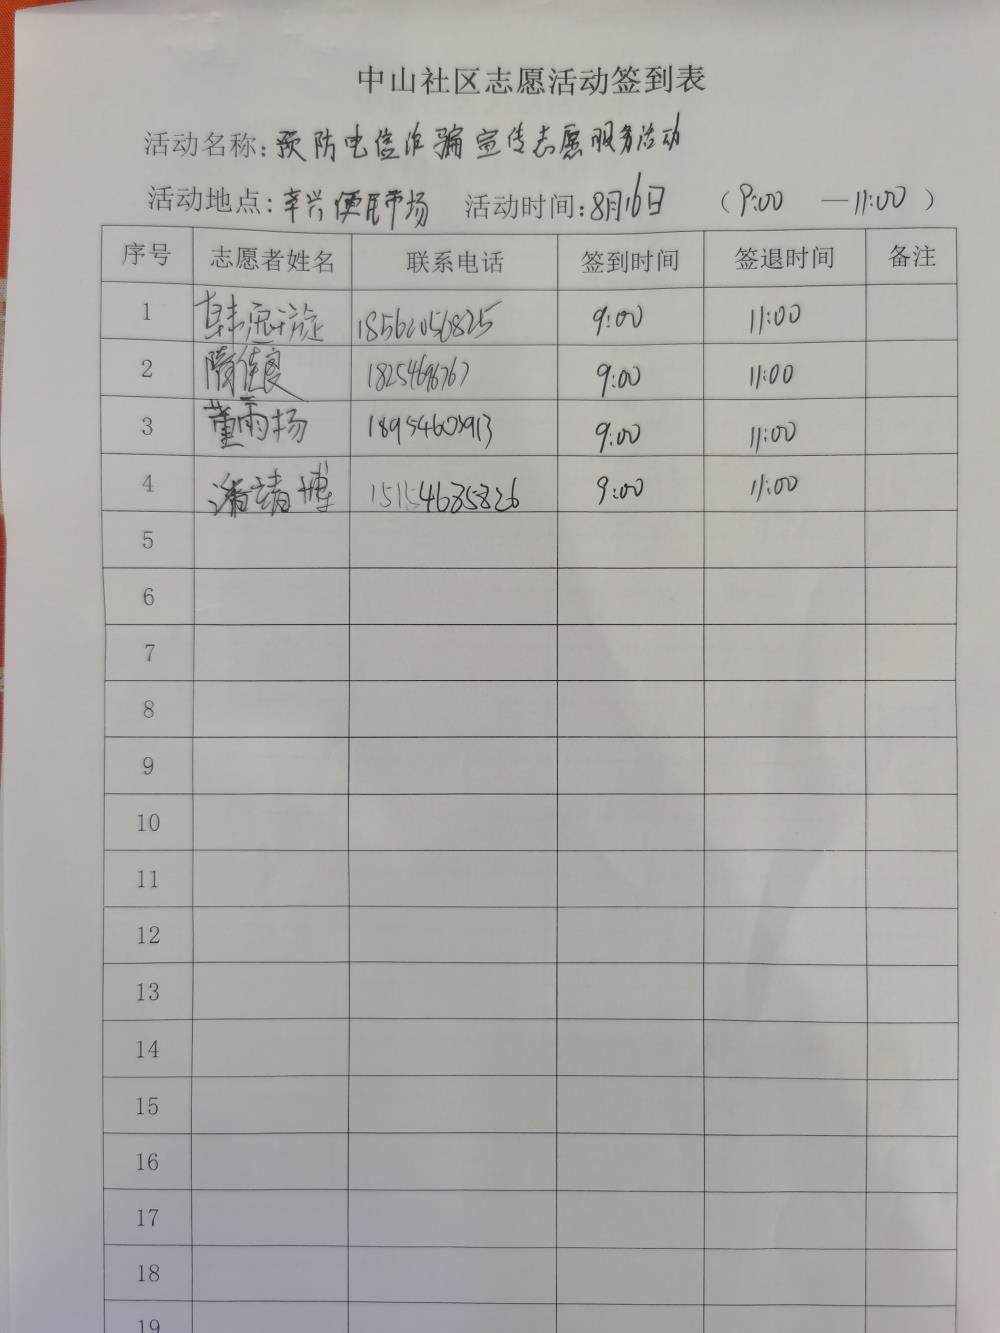 中山社区志愿活动签到表
活动名称:预防电信诈骗宣传志愿服务活动
活动地点:辛兴便民市场 活动时间:8月16日 (9:00 —11:00)
序号 志愿者姓名 联系电话 签到时间 签退时间 备注
1 18562056825 9:00 11:00
2 隋佳良 9:00 11:00
3 董雨扬 9:00 11:00
4 潘靖博 15154685826 9:00 11:00
5
6
7
8
9
10
11
12
13
14
15
16
17
18
19